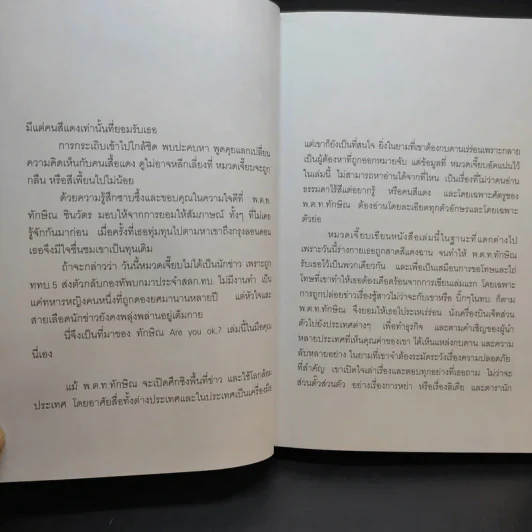 มีแต่คนสีแดงเท่านั้นที่ยอมรับเธอ
การกระเถิบเข้าไปใกล้ชิด พบปะคบหา พูดคุยแลกเปลี่ยน
ความคิดเห็นกับคนเสื้อแดง ดูไม่อาจหลีกเลี่ยงที่ หมวดเจี๊ยบจะถูก
กลืน หรือสีเพี้ยนไปไม่น้อย
ด้วยความรู้สึกซาบซึ้งและขอบคุณในความใจดีที่ พ.ต.ท.
ทักษิณ ชินวัตร มอบให้จากการยอมให้สัมภาษณ์ ทั้งๆ ที่ไม่เคย
รู้จักกันมาก่อน เมื่อครั้งที่เธอทุ่มทุนไปตามหาเขาถึงกรุงลอนดอน
เธอจึงมีใจชื่นชมเขาเป็นทุนเดิม
ถ้าจะกล่าวว่า วันนี้หมวดเจี๊ยบไม่ได้เป็นนักข่าว เพราะถูก
ททบ.5 ส่งตัวกลับกองทัพบกมาประจำสลก.ทบ. ไม่มีงานทำ เป็น
แค่ทหารหญิงคนหนึ่งที่ถูกดองยศมานานหลายปี แต่หัวใจและ
สายเลือดนักข่าวยังคงพลุ่งพล่านอยู่เต็มกาย
นี่จึงเป็นที่มาของ ทักษิณ Are you ok.? เล่มนี้ในมือคุณ
นี่เอง
แม้ พ.ต.ท.ทักษิณ จะเปิดศึกชิงพื้นที่ข่าว และใช้โลกล้อม
ประเทศ โดยอาศัยสื่อทั้งต่างประเทศและในประเทศเป็นเครื่องมือ
แต่เขาก็ยังเป็นที่สนใจ ยิ่งในยามที่เขาต้องบกดานเร่ร่อนเพราะกลาย
เป็นผู้ต้องหาที่ถูกออกหมายจับ แต่ข้อมูลที่ หมวดเจี๊ยบอัดแน่นไว้
ในเล่มนี้ ไม่สามารถหาอ่านได้จากที่ไหน เป็นเรื่องที่ไม่ว่าคนอ่าน
ธรรมดาไร้สีแต่อยากรู้ หรือคนสีแดง และโดยเฉพาะศัตรูของ
พ.ต.ท.ทักษิณ ต้องอ่านโดยละเอียดทุกตัวอักษรและโดยเฉพาะ
ตัวย่อ
หมวดเจี๊ยบเขียนหนังสือเล่มนี้ในฐานะที่แตกต่างไป
เพราะวันนี้ร่างกายเธอถูกสาดสีแดงฉาน จนทำให้ พ.ต.ท.ทักษิณ
รับเธอไว้เป็นพวกเดียวกัน และเพื่อเป็นเสมือนการขอโทษและไถ่
โทษที่เขาทำให้เธอต้องเดือดร้อนจากการเขียนเล่มแรก โดยเฉพาะ
การถูกปล่อยข่าวเรื่องชู้สาวไม่ว่าจะกับเขาหรือ บิ๊กๆในทบ. ก็ตาม
พ.ต.ท.ทักษิณ จึงยอมให้เธอไปตระเร่ร่อน นั่งเครื่องบินเจ็ทส่วน
ตัวไปยังประเทศต่างๆ เพื่อทำธุรกิจ และตามคำเชิญของผู้นำ
หลายประเทศที่เห็นคุณค่าของเขา ได้เห็นแหล่งกบดาน และความ
ลับหลายอย่าง ในยามที่เขาจำต้องระมัดระวังเรื่องความปลอดภัย
ที่สำคัญ เขาเปิดใจเล่าเรื่องและตอบทุกอย่างที่เธอถาม ไม่ว่าจะ
ส่วนตัวส่วนตัว อย่างเรื่องการหย่า หรือเรื่องลีเดีย และดารานัก